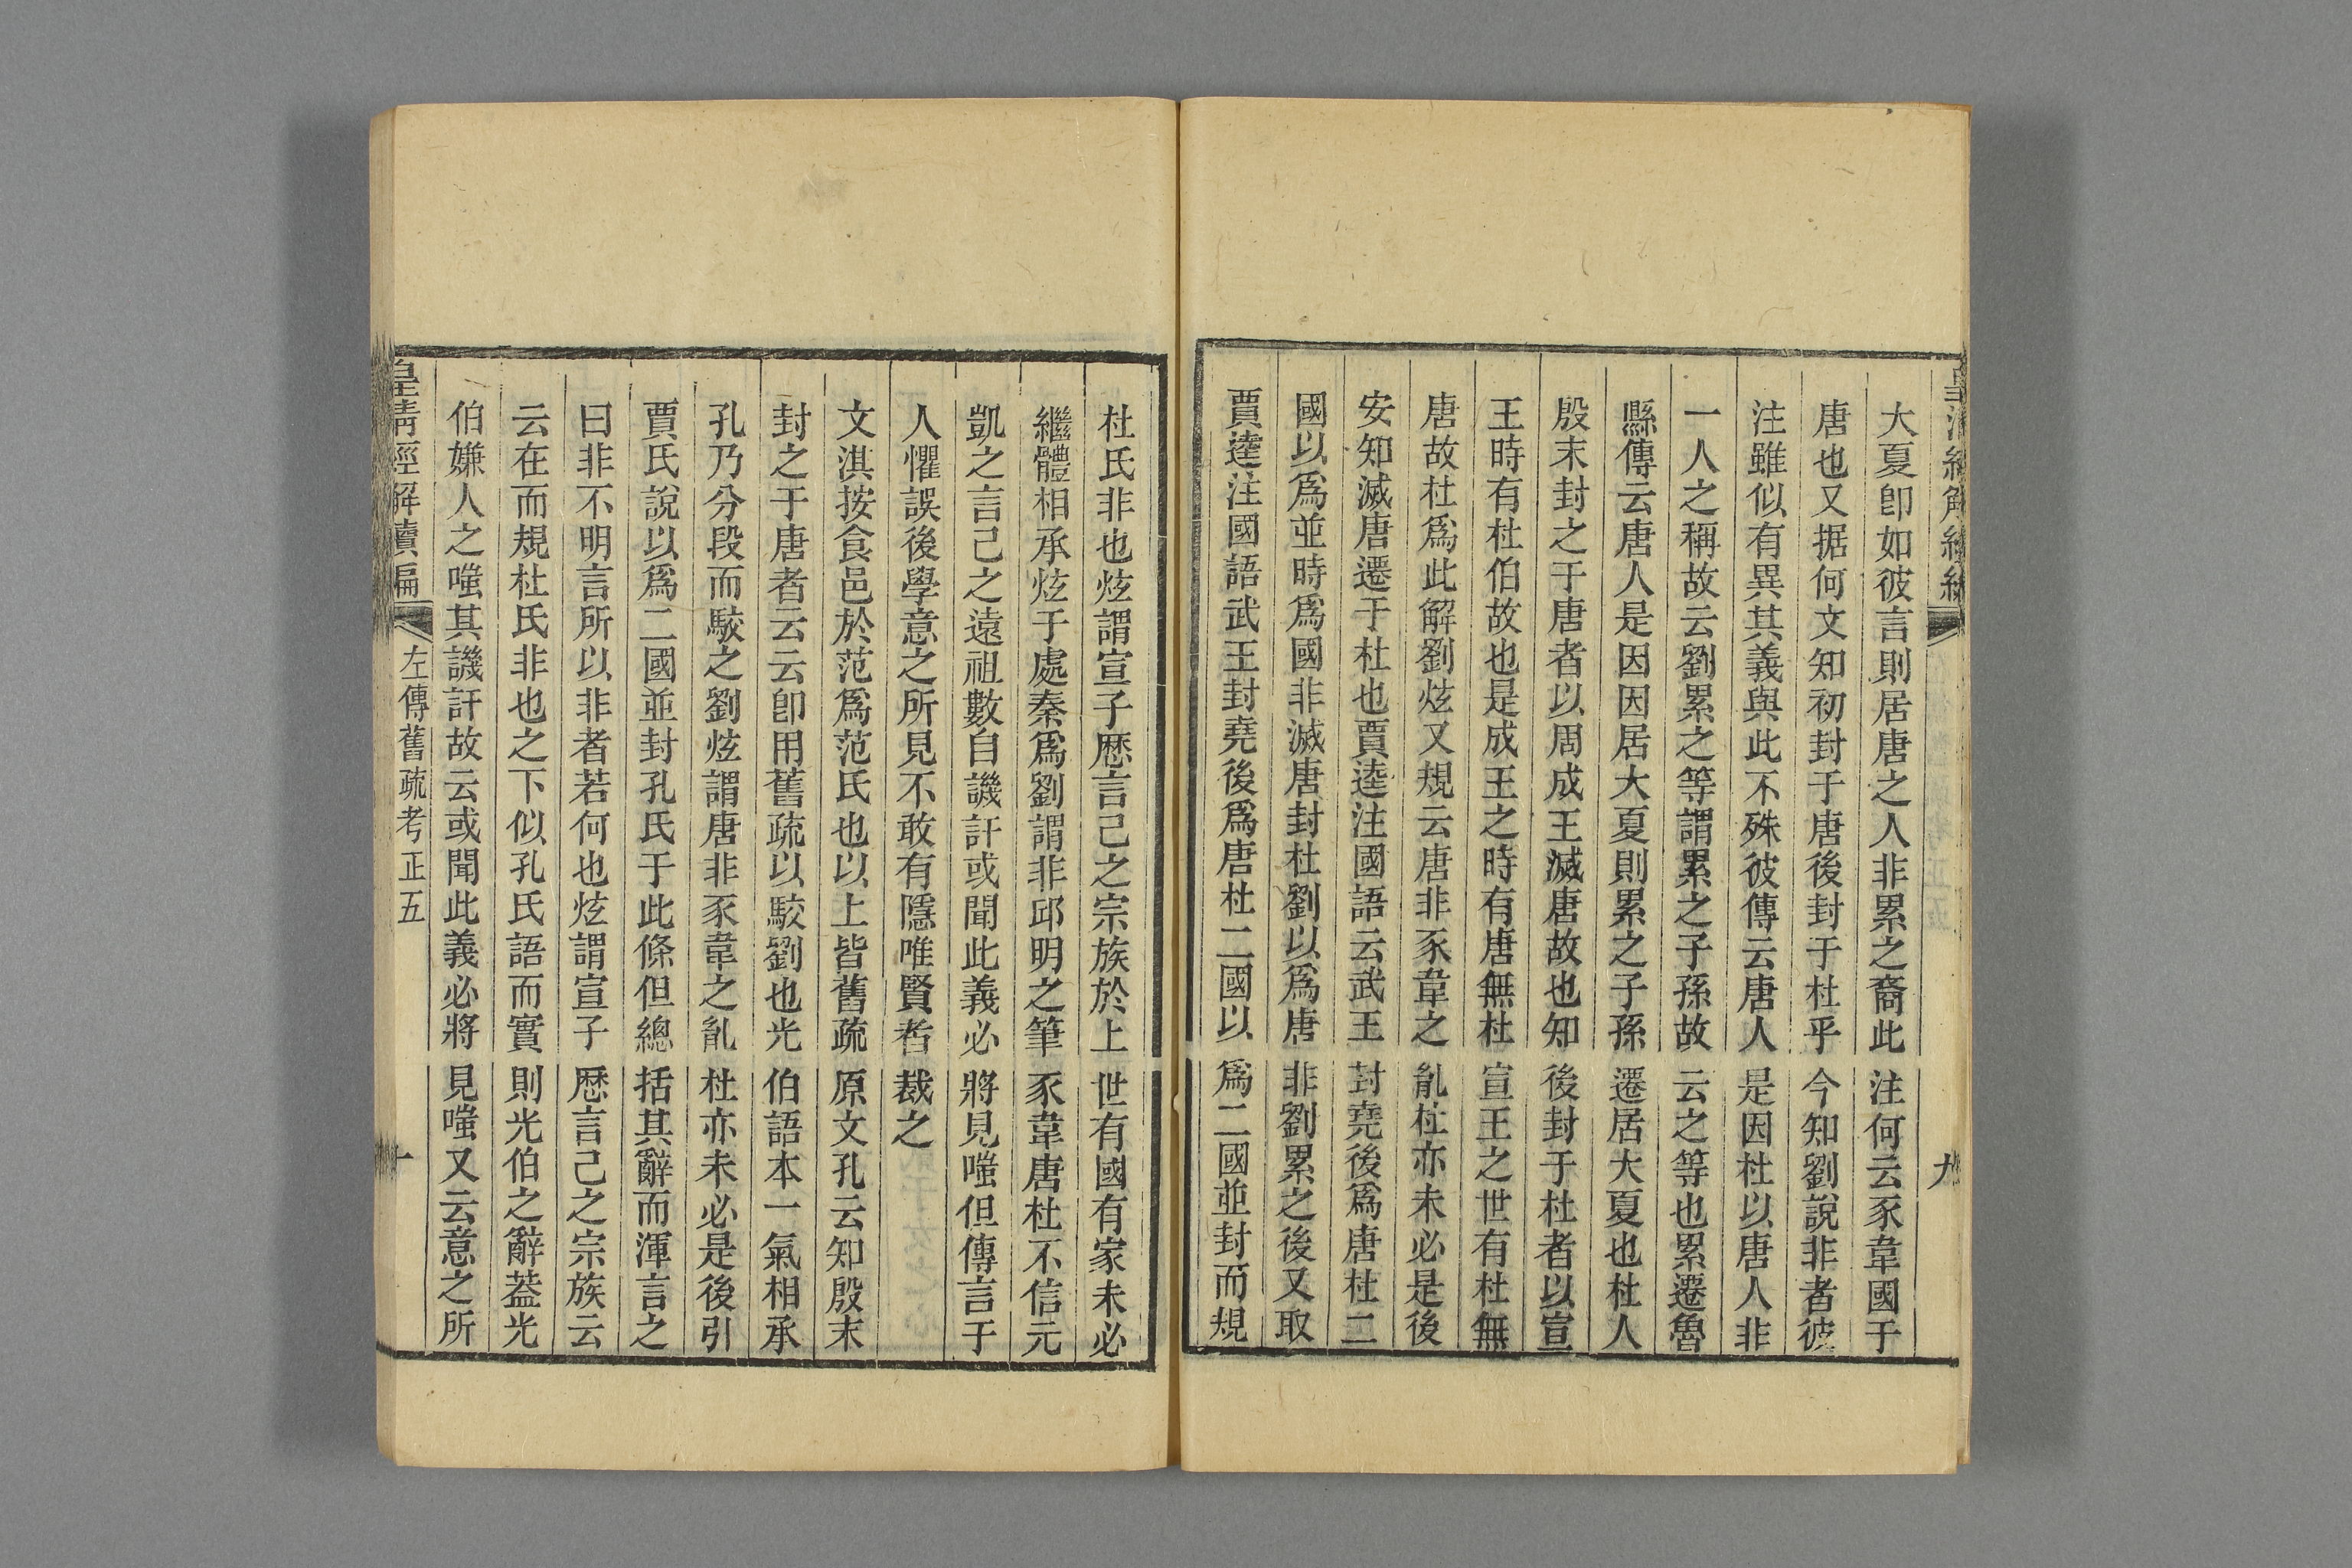 大夏卽如彼言則居唐之人非累之裔此注何云豕韋國于
唐也又据何文知初封于唐後封于杜乎今知劉說非者彼
注雖似有異其義與此不殊彼傳云唐人是因杜以唐人非
一人之稱故云劉累之等謂累之子孫故云之等也累遷魯
縣傳云唐人是因因居大夏則累之子孫遷居大夏也杜人
殷末封之于唐者以周成王滅唐故也知後封于杜者以宣
王時有杜伯故也是成王之時有唐無杜宣王之世有杜無
唐故杜爲此解劉炫又規云唐非豕韋之亂杜亦未必是後
安知滅唐遷于杜也賈逵注國語云武王封堯後爲唐杜二
國以爲並時爲國非滅唐封杜劉以爲唐非劉累之後又取
賈逵注國語武王封堯後爲唐杜二國以爲二國並封而規
杜氏非也炫謂宣子歷言己之宗族於上世有國有家未必
繼體相承炫于處秦爲劉謂非邱明之筆豕韋唐杜不信元
凱之言己之遠祖數自譏訐或聞此義必將見嗤但傳言于
人懼誤後學意之所見不敢有隱唯賢者裁之
文淇按食邑於范爲范氏也以上皆舊疏原文孔云知殷末
封之于唐者云云卽用舊疏以駮劉也光伯語本一氣相承
孔乃分段而駮之劉炫謂唐非豕韋之亂杜亦未必是後引
賈氏說以爲二國並封孔氏于此條但總括其辭而渾言之
曰非不明言所以非者若何也炫謂宣子歷言己之宗族云
云在而規杜氏非也之下似孔氏語而實則光伯之辭葢光
伯嫌人之嗤其譏訐故云或聞此義必將見嗤又云意之所
皇清經解續編
左傳舊疏考正五